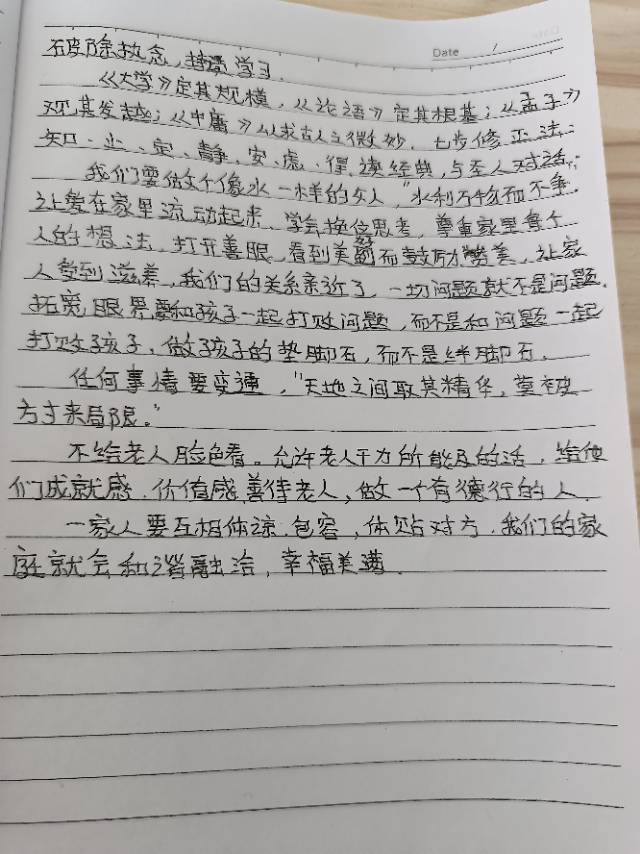 Date /
破除执念，持续学习.
《大学》定其规模，《论语》定其根基；《孟子》
观其发越；《中庸》以求古人之微妙. 七步修正法：
知、止、定、静、安、虑、得. 读经典，与圣人对话；
我们要做个像水一样的女人，"水利万物而不争.
让爱在家里流动起来. 学会换位思考，尊重家里每个
人的想法. 打开善眼，看到美好而鼓励赞美，让家
人受到滋养，我们的关系亲近了，一切问题就不是问题.
拓宽眼界要和孩子一起打败问题，而不是和问题一起
打败孩子，做孩子的垫脚石，而不是绊脚石.
任何事情要变通，"天地之间取其精华，莫被
方寸来局限."
不给老人脸色看。允许老人干力所能及的活，给他
们成就感. 价值感. 善待老人，做一个有德行的人.
一家人要互相体谅. 包容，体贴对方. 我们的家
庭就会和谐融洽，幸福美满.